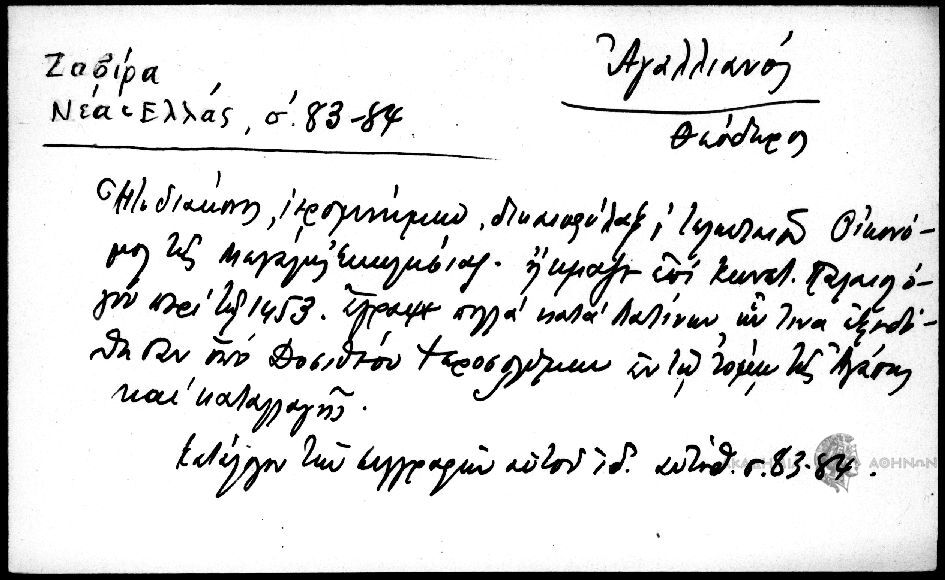 Ζαβίρα
Νέα Ἑλλάς, σ. 83-84
Ἀγαλλιανός
Θεόδωρος
Ἦτο διάκονος, ἱερομνήμων, δικαιοφύλαξ, τελευταῖον Οἰκονό-
μος τῆς Μεγάλης Ἐκκλησίας. ἤκμαζε ἐπί Κωνστ. Παλαιολό-
γου περί τό 1453. ἔγραψε πολλά κατά Λατίνων ὧν τινα ἐξεδό-
θησαν ὑπό Δοσιθέου Ἱεροσολύμων ἐν τῷ τόμῳ τῆς Ἀγάπης
καί καταλλαγῆς.
Κατάλογον τῶν συγγραφῶν αὐτοῦ ἰδ. αὐτόθ. σ. 83-84.
ΑΚΑΔΗΜΙΑ ΑΘΗΝΩΝ